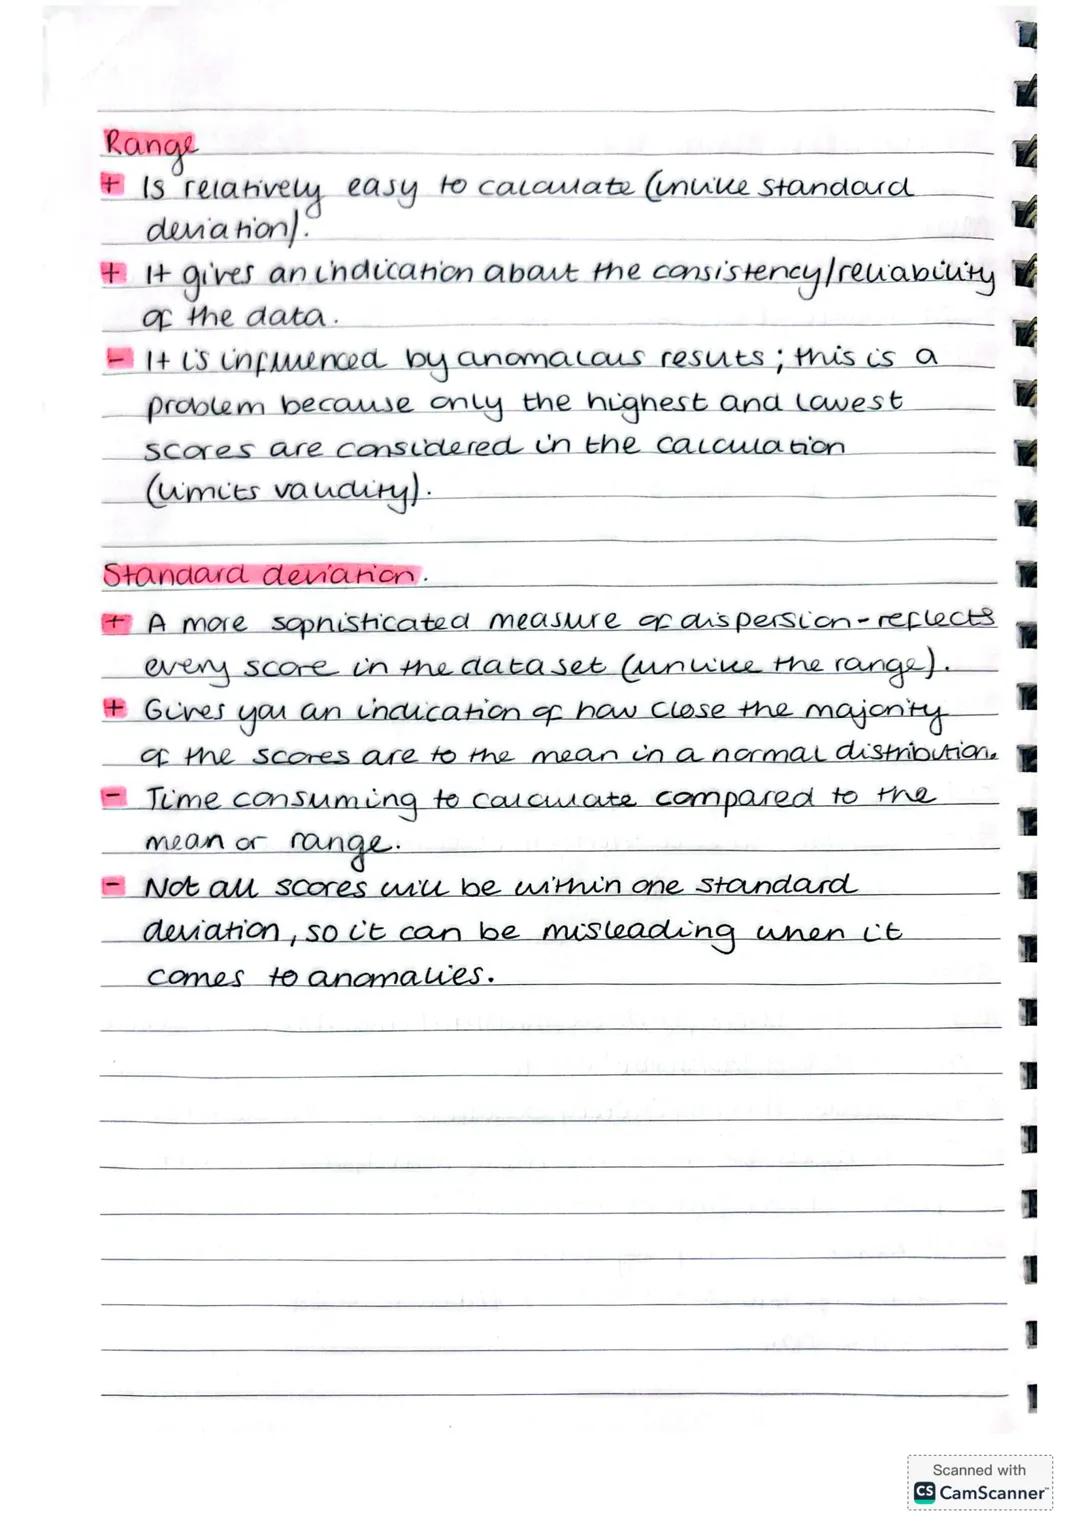 Range
+ Is relatively easy to calculate (unlike standard
deviation).
+ It gives an indication about the consistency/reliability
of the data.
- It is influenced by anomalous resuts ; this is a
problem because only the highest and lowest
scores are considered in the calculation
(limits validity).
Standard deviation.
+ A more sophisticated measure of dispersion - reflects
every score in the data set (unlike the range).
+ Gives you an indication of how close the majority
of the scores are to the mean in a normal distribution.
- Time consuming to calculate compared to the
mean or range.
- Not all scores will be within one standard
deviation, so it can be misleading when it
comes to anomalies.
Scanned with
CS CamScanner